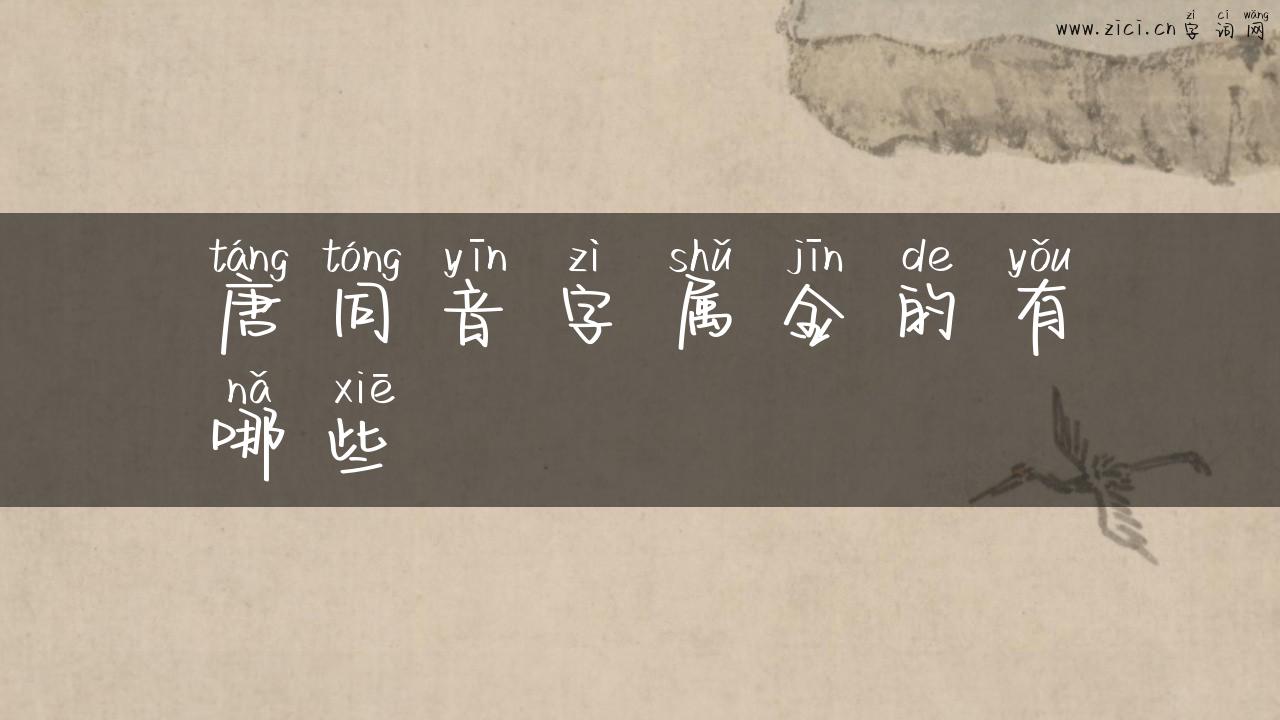 zì cí wǎng
www.zici.cn 字词网
táng tóng yīn zì shǔ jīn de yǒu
唐同音字属金的有
nǎ xiē
哪些